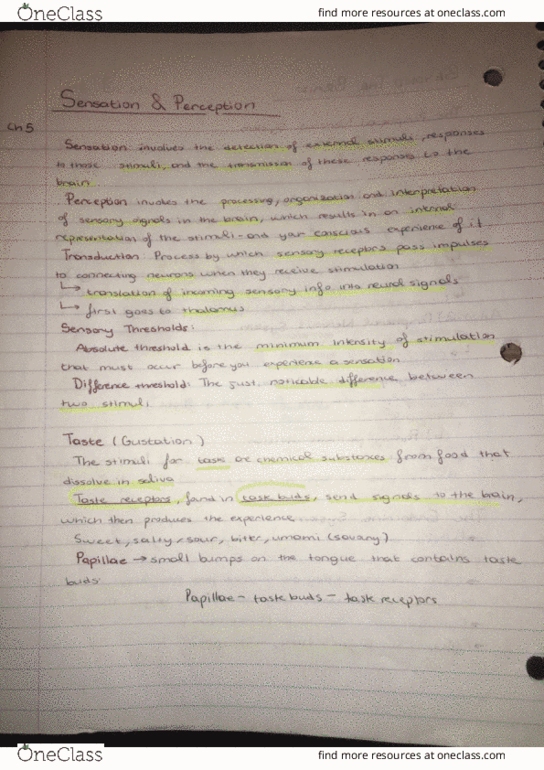 OneClass
find more resources at oneclass.com
Sensation & Perception
Ch 5
Sensation involves the detection of external stimuli, responses
to those stimuli, and the transmission of these responses to the
brain
. Perception involves the processing, organization and interpretation
of sensory signals in the brain, which results in an internal
representation of the stimuli - and your conscious experience of it
Transduction: Process by which sensory receptors pass impulses
to connecting neurons when they receive stimulation
↳ translation of incoming sensory info into neural signals
↳ first goes to thalamus
Sensory Thresholds:
Absolute threshold is the minimum intensity of stimulation
that must occur before you experience a sensation
Difference threshold: The just noticable difference between
two stimuli
Taste (Gustation)
The stimuli for taste are chemical substances from food that
dissolve in saliva
Taste receptors, found in taste buds, send signals to the brain,
which then produces the experience
Sweet, salty, sour, bitter, umami (savary)
Papillae → small bumps on the tongue that contains taste
buds
Papillae - taste buds - taste receptors
OneClass
find more resources at oneclass.com